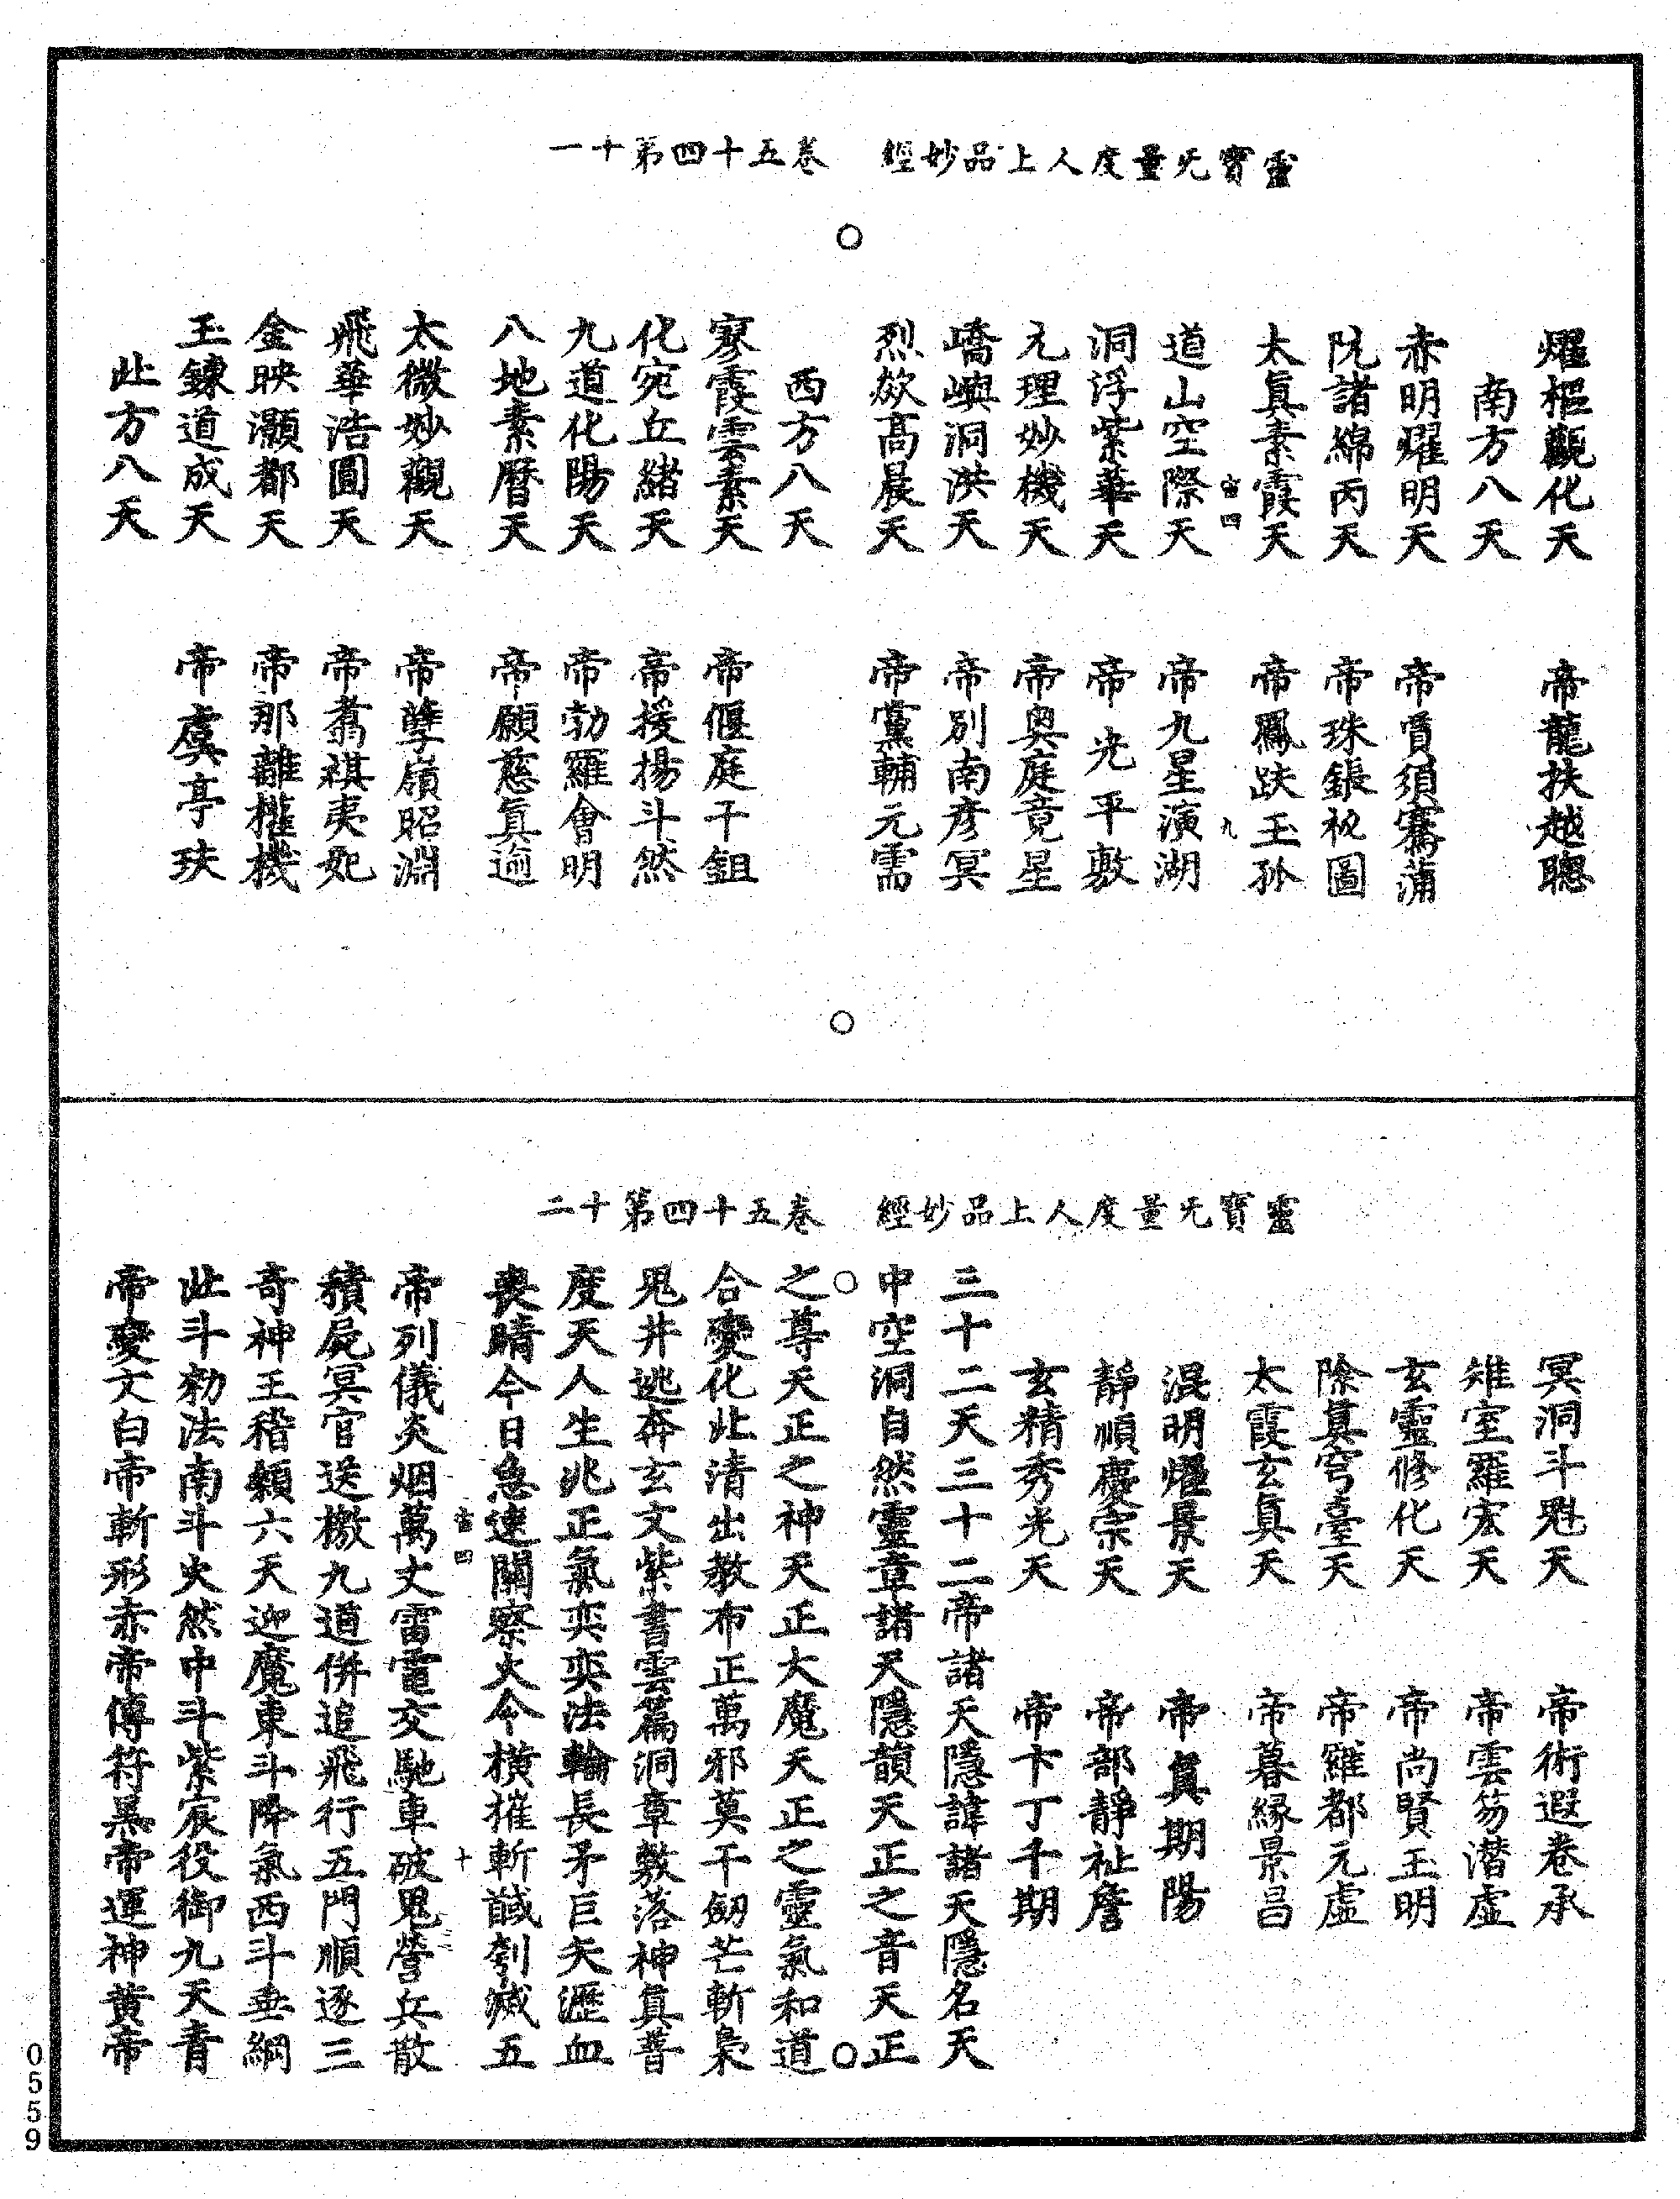 靈寶旡量度人上品妙經　卷五十四第十一
燿樞觀化天　帝龍扶越聰
南方八天
赤明燿明天　帝賔須騫蒲
阮諸綿丙天　帝珠鋹衱圖
太眞素霞天　帝鳳趺玉孙
當四　九
道山空際天　帝九星演湖
洞浮紫華天　帝光平敷
元理妙機天　帝奥庭竟星
嶠嶼洞洪天　帝別南彦冥
烈欻高晨天　帝黨輔元需
西方八天
寥霞雲素天　帝偃庭干鉏
化宛丘緒天　帝援揚斗然
九道化陽天　帝勃羅會明
八地素曆天　帝願慈眞逾
太微妙觀天　帝孽嶺昭淵
飛華浩圓天　帝翥祺夷妃
金映灝都天　帝那離權機
玉鍊道成天　帝虞亭玞
北方八天
靈寶旡量度人上品妙經　卷五十四第十二
冥洞斗魁天　帝術遐卷承
雉室羅宏天　帝雲笏潜虛
玄靈修化天　帝尚賢玉明
除眞穹臺天　帝羅都元虛
太霞玄眞天　帝暮緣景昌
混明燿景天　帝眞期陽
靜順慶宗天　帝部靜祉詹
玄精秀光天　帝卞丁千期
三十二天三十二帝諸天隱諱諸天隱名天
中空洞自然靈章諸天隱韻天正之音天正
之尊天正之神天正大魔天正之靈氣和道
合變化北清出教布正萬邪莫干劒芒斬梟
鬼井逃奔玄文紫書雲篇洞章敷落神眞普
度天人生兆正氣奕奕法輪長矛巨矢瀝血
喪睛今日急速關察火令橫摧斬馘刳滅五
當四　十
帝列儀炎烟萬丈雷電交馳車破鬼營兵散
積屍冥官送檄九道併追飛行五門順逐三
奇神王稽顙六天迎魔東斗降氣西斗垂綱
北斗勑法南斗火然中斗紫宸役御九天青
帝變文白帝斬形赤帝傳符黑帝運神黄帝
0559